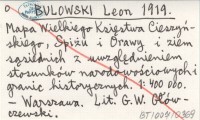 BUŁOWSKI Leon 1919.
Mapa Wielkiego Księstwa Cieszyń-
skiego, Spiżu i Orawy i ziem
sąsiednich z uwzględnieniem
stosunków narodowościowych i
granic historycznych. 1:400 000.
- Warszawa. Lit. G. W. Głów-
czewski.